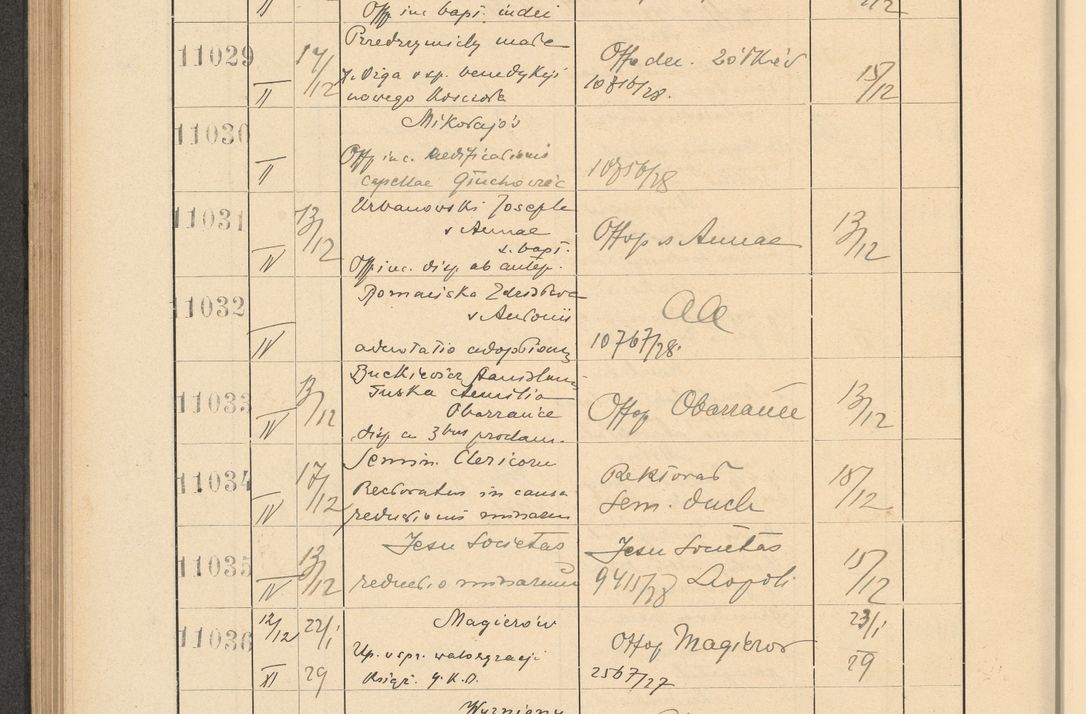 II Off inc bapt. indei 2/12
11029 II 14/12 Przedrzymichy małe
X. Dziga w sp. benedykcji
nowego kościoła
Off o dec. Żółkiew
10816/28. 15/12
11030 II Mikołajów
Off inc. aedificationis
capellae Głuchowiec
10856/28
11031 IV 13/12 Urbanowski Joseph
s Annae
s. bapt.
Off inc. disp ab antep.
Off op s Annae 13/12
11032 IV Romańska
s Antonii
adnotatio adoptionis
aa
10767/28.
11033 IV 13/12 Stanislaus
Aemilia
Obarzańce
disp a 3bus proclam.
Off op Obarzańce 13/12
11034 IV 17/12 Semin. Clericorum
Rectoratus in causa
reductionis missarum
Rektorat
Sem. duch 18/12
11035 IV 13/12 Jesu Societas
reductio missarum
Jesu Societas
9415/28 Leopoli 15/12
11036 12/12 XI 22/1 29 Magierów
Up. w spr. waloryzacji
książ. G.K.O.
Off op Magierów
2567/27 23/1 29